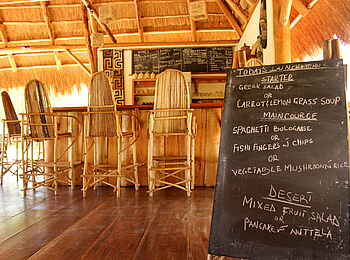 TODAY'S LUNCH MENU
STARTER
GREEK SALAD
OR
CARROT & LEMON GRASS SOUP
MAIN COURCE
SPAGHETTI BOLOGNAISE
OR
FISH FINGERS n CHIPS
OR
VEGETABLE MUSHROOM n RICE
DESERT
MIXED FRUIT SALAD
OR
PANCAKE n NUTTELA